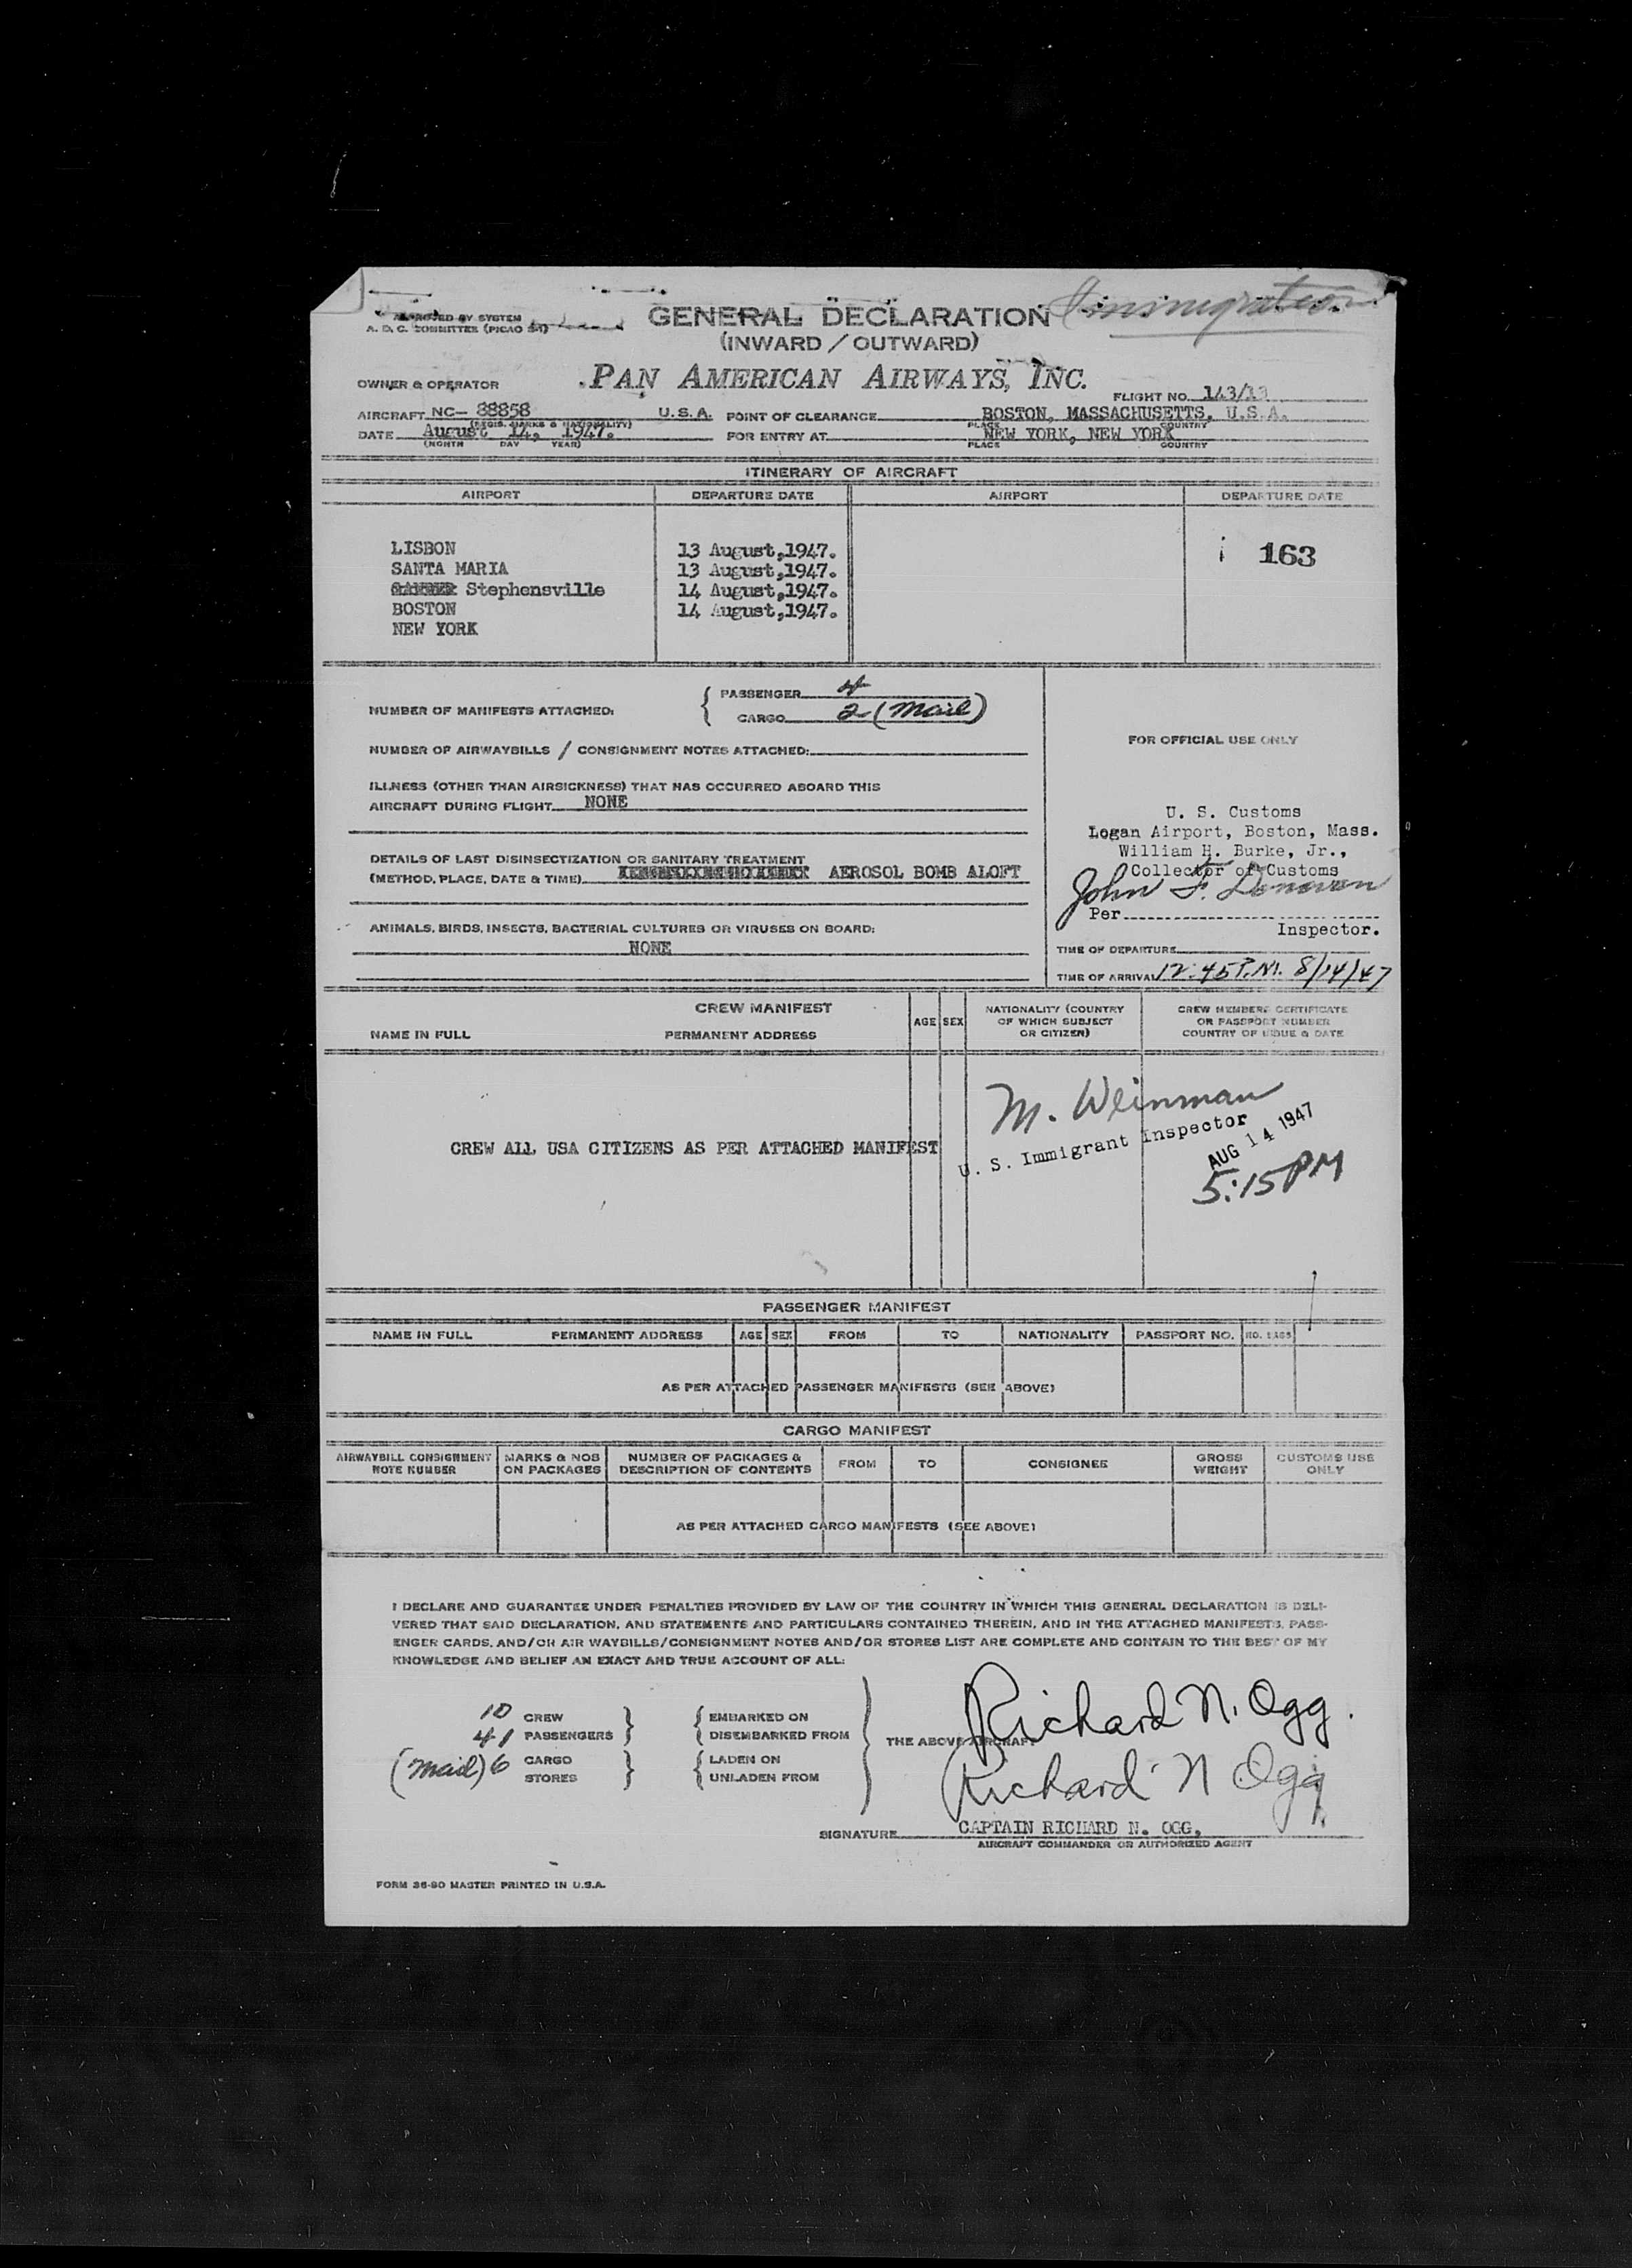 Immigration
APPROVED BY SYSTEM
A. D. C. COMMITTEE (PICAO
GENERAL DECLARATION
(INWARD / OUTWARD)
OWNER & OPERATOR PAN AMERICAN AIRWAYS, INC.
FLIGHT NO. 143/13
AIRCRAFT NC- 88858 U.S.A. POINT OF CLEARANCE BOSTON, MASSACHUSETTS, U.S.A.
(REGIS. MARKS & NATIONALITY) PLACE COUNTRY
DATE August 14, 1947. FOR ENTRY AT NEW YORK, NEW YORK
(MONTH DAY YEAR) PLACE COUNTRY
ITINERARY OF AIRCRAFT
AIRPORT DEPARTURE DATE AIRPORT DEPARTURE DATE
LISBON 13 August,1947. 163
SANTA MARIA 13 August,1947.
Stephensville 14 August,1947.
BOSTON 14 August,1947.
NEW YORK
NUMBER OF MANIFESTS ATTACHED: { PASSENGER 4
CARGO 2 (Mail)
NUMBER OF AIRWAYBILLS / CONSIGNMENT NOTES ATTACHED:
ILLNESS (OTHER THAN AIRSICKNESS) THAT HAS OCCURRED ABOARD THIS
AIRCRAFT DURING FLIGHT NONE
DETAILS OF LAST DISINSECTIZATION OR SANITARY TREATMENT
(METHOD, PLACE, DATE & TIME) AEROSOL BOMB ALOFT
ANIMALS, BIRDS, INSECTS, BACTERIAL CULTURES OR VIRUSES ON BOARD:
NONE
FOR OFFICIAL USE ONLY
U. S. Customs
Logan Airport, Boston, Mass.
William H. Burke, Jr.,
Collector of Customs
John F. Donovan
Per
Inspector.
TIME OF DEPARTURE
TIME OF ARRIVAL 12:45 P.M. 8/14/47
CREW MANIFEST
NAME IN FULL PERMANENT ADDRESS AGE SEX NATIONALITY (COUNTRY OF WHICH SUBJECT OR CITIZEN) CREW MEMBERS CERTIFICATE OR PASSPORT NUMBER COUNTRY OF ISSUE & DATE
CREW ALL USA CITIZENS AS PER ATTACHED MANIFEST
M. Weinman
U. S. Immigrant Inspector
AUG 14 1947
5:15 PM
PASSENGER MANIFEST
NAME IN FULL PERMANENT ADDRESS AGE SEX FROM TO NATIONALITY PASSPORT NO. NO. BAGS
AS PER ATTACHED PASSENGER MANIFESTS (SEE ABOVE)
CARGO MANIFEST
AIRWAYBILL CONSIGNMENT NOTE NUMBER MARKS & NOS ON PACKAGES NUMBER OF PACKAGES & DESCRIPTION OF CONTENTS FROM TO CONSIGNEE GROSS WEIGHT CUSTOMS USE ONLY
AS PER ATTACHED CARGO MANIFESTS (SEE ABOVE)
I DECLARE AND GUARANTEE UNDER PENALTIES PROVIDED BY LAW OF THE COUNTRY IN WHICH THIS GENERAL DECLARATION IS DELI-
VERED THAT SAID DECLARATION, AND STATEMENTS AND PARTICULARS CONTAINED THEREIN, AND IN THE ATTACHED MANIFESTS, PASS-
ENGER CARDS, AND/OR AIR WAYBILLS/CONSIGNMENT NOTES AND/OR STORES LIST ARE COMPLETE AND CONTAIN TO THE BEST OF MY
KNOWLEDGE AND BELIEF AN EXACT AND TRUE ACCOUNT OF ALL:
10 CREW } { EMBARKED ON
41 PASSENGERS } { DISEMBARKED FROM
(Mail) 6 CARGO } { LADEN ON
STORES } { UNLADEN FROM
THE ABOVE AIRCRAFT
Richard N. Ogg.
Richard N Ogg
SIGNATURE CAPTAIN RICHARD N. OGG,
AIRCRAFT COMMANDER OR AUTHORIZED AGENT
FORM 36-80 MASTER PRINTED IN U.S.A.